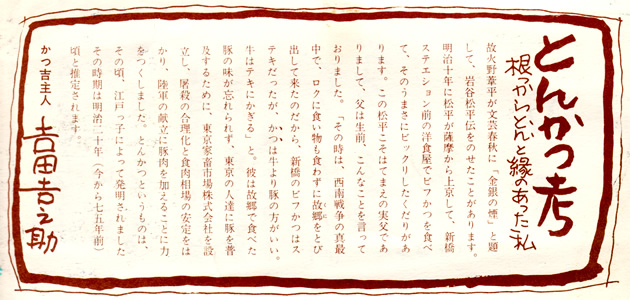 とんかつ考
根っからどんと縁のあった私
故火野葦平が文芸春秋に「金銀の煙」と題
して、岩谷松平伝をのせたことがあります。
明治十年に松平が薩摩から上京して、新橋
ステエション前の洋食屋でビフかつを食べ
て、そのうまさにビックリしたくだりがあ
ります。この松平こそはてまえの実父であ
りまして、父は生前、こんなことを言って
おりました。「その時は、西南戦争の真最
中で、ロクに食い物も食わずに故郷をとび
出して来たのだから、新橋のビフかつはス
テキだったが、かつは牛より豚の方がいい。
牛はテキにかぎる」と。彼は故郷で食べた
豚の味が忘れられず、東京の人達に豚を普
及するために、東京家畜市場株式会社を設
立し、屠殺の合理化と食肉相場の安定をは
かり、陸軍の献立に豚肉を加えることに力
をつくしました。とんかつというものは、
その頃、江戸っ子によって発明されました
その時期は明治二十年（今から七五年前）
頃と推定されます。
かつ吉主人
吉田吉之助